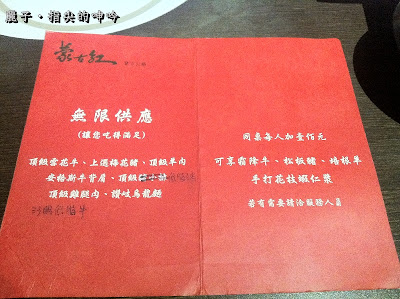 麗子‧指尖的呻吟
蒙古紅
無限供應
(讓您吃得滿足)
頂級雪花牛、上選梅花豬、頂級羊肉
安格斯牛背肩、頂級
頂級雞腿肉、讚岐烏龍麵
同桌每人加壹佰元
可享霜降牛、松板豬、培根羊
手打花枝蝦仁漿
若有需要請洽服務人員